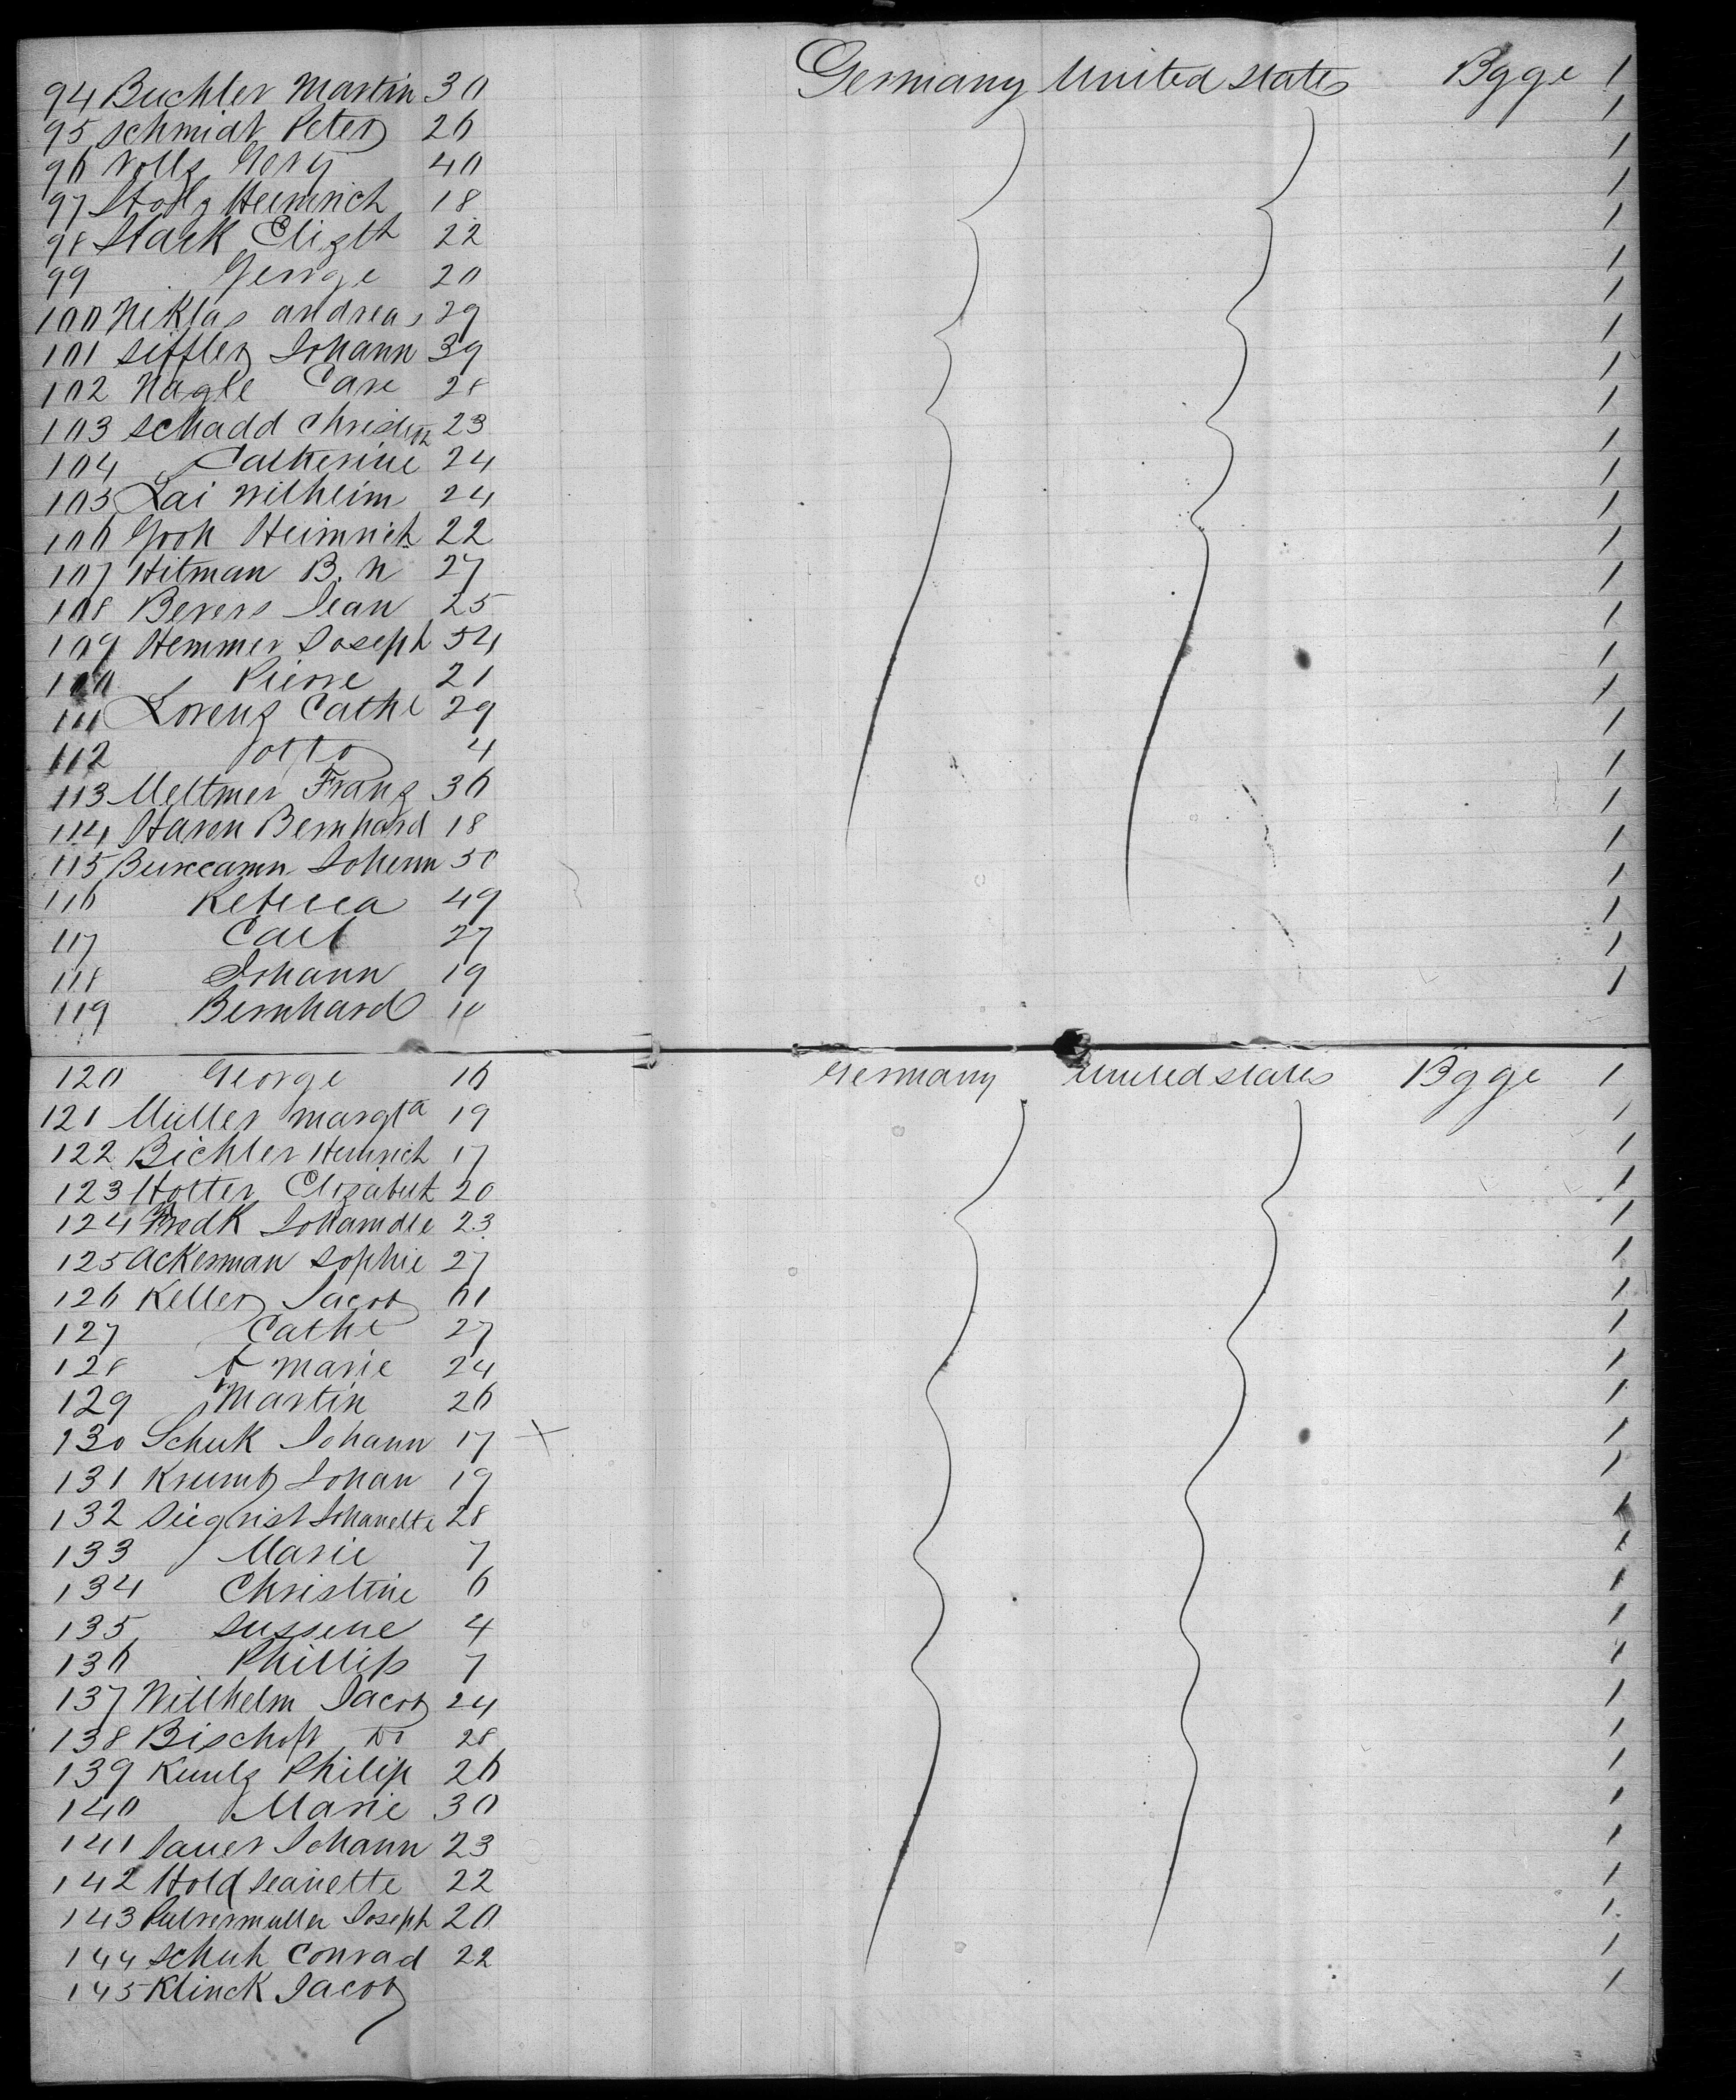 94 Buchler Martin 30 Germany United States Bgge 1
95 Schmidt Peter 26 1
96 Nollz Georg 40 1
97 Stollz Heinrich 18 1
98 Stark Elizth 22 1
99 George 20 1
100 Niklas Andreas 29 1
101 Siffler Johann 39 1
102 Nagle Care 28 1
103 Schadd Christin 23 1
104 Catherine 24 1
105 Lai Wilhelm 24 1
106 Groh Heinrich 22 1
107 Hitman B. N 27 1
108 Bevers Jean 25 1
109 Hemmer Joseph 54 1
110 Pierre 21 1
111 Lorenz Cathe 29 1
112 Otto 4 1
113 Meltmer Franz 36 1
114 Haron Bernhard 18 1
115 Johann 50 1
116 Rebecca 49 1
117 Carl 27 1
118 Johann 19 1
119 Bernhard 1
120 George 16 Germany United States Bgge 1
121 Müller Margta 19 1
122 Bichler Heinrich 17 1
123 Holter Elizabeth 20 1
124 23 1
125 Ackerman Sophie 27 1
126 Keller Jacob 61 1
127 Cathe 27 1
128 Marie 24 1
129 Martin 26 1
130 Schuk Johann 17 × 1
131 Krumb Johan 19 1
132 Siegrist Johanette 28 1
133 Marie 7 1
134 Christine 6 1
135 Sussene 4 1
136 Phillip 7 1
137 Willhelm Jacob 24 1
138 Bischoff Do 28 1
139 Kuntz Philip 26 1
140 Marie 30 1
141 Sauer Johann 23 1
142 Hold Jeanette 22 1
143 Pulvermuller Joseph 20 1
144 Schuh Conrad 22 1
145 Klinck Jacob 1